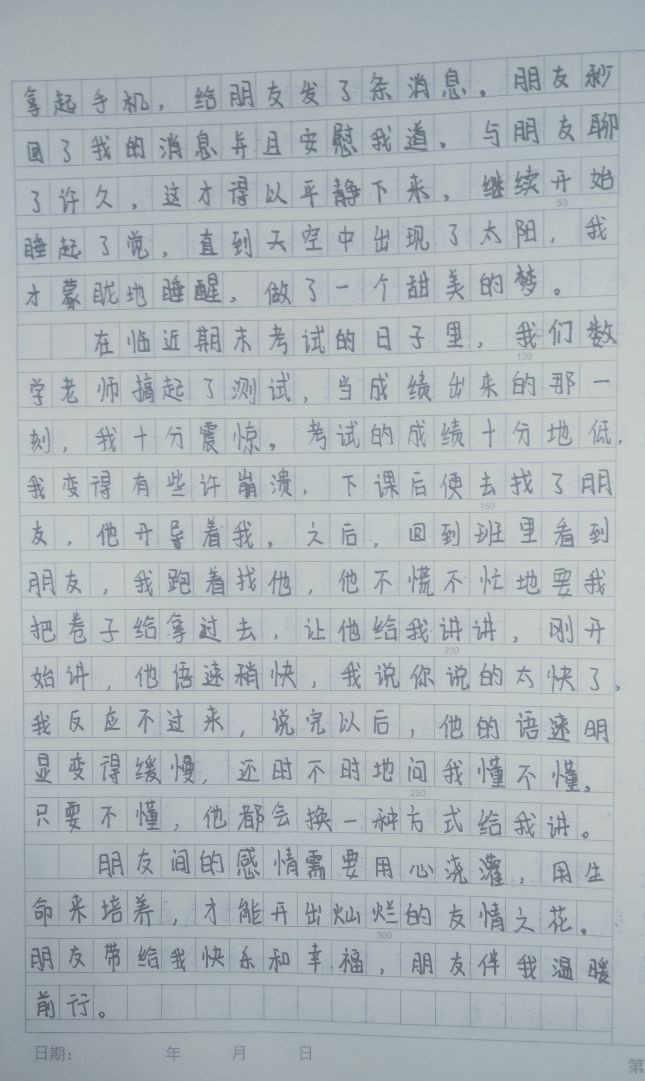 拿起手机，给朋友发了条消息。朋友秒
回了我的消息并且安慰我道。与朋友聊
了许久，这才得以平静下来，继续开始
50
睡起了觉，直到天空中出现了太阳，我
才蒙眬地睡醒，做了一个甜美的梦。
在临近期末考试的日子里，我们数
100
学老师搞起了测试，当成绩出来的那一
刻，我十分震惊。考试的成绩十分地低，
我变得有些许崩溃，下课后便去找了朋
150
友，他开导着我。之后，回到班里看到
朋友，我跑着找他，他不慌不忙地要我
把卷子给拿过去，让他给我讲讲，刚开
200
始讲，他语速稍快，我说你说的太快了，
我反应不过来，说完以后，他的语速明
显变得缓慢，还时不时地问我懂不懂。
250
只要不懂，他都会换一种方式给我讲。
朋友间的感情需要用心浇灌，用生
命来培养，才能开出灿烂的友情之花。
300
朋友带给我快乐和幸福，朋友伴我温暖
前行。
日期： 年 月 日
第